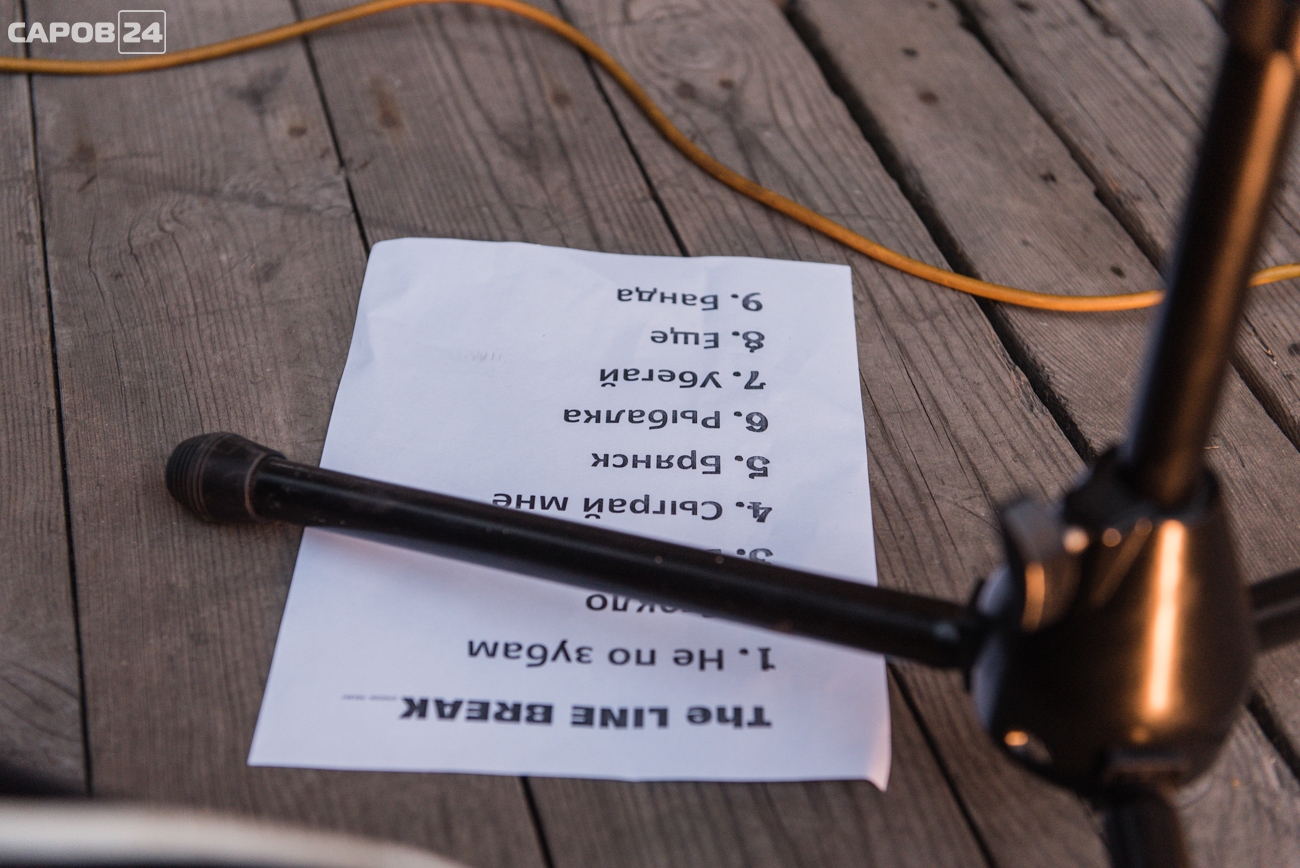 САРОВ 24
The LINE BREAK
1. Не по зубам
3.
4. Сыграй мне
5. Брянск
6. Рыбалка
7. Убегай
8. Еще
9. Банда